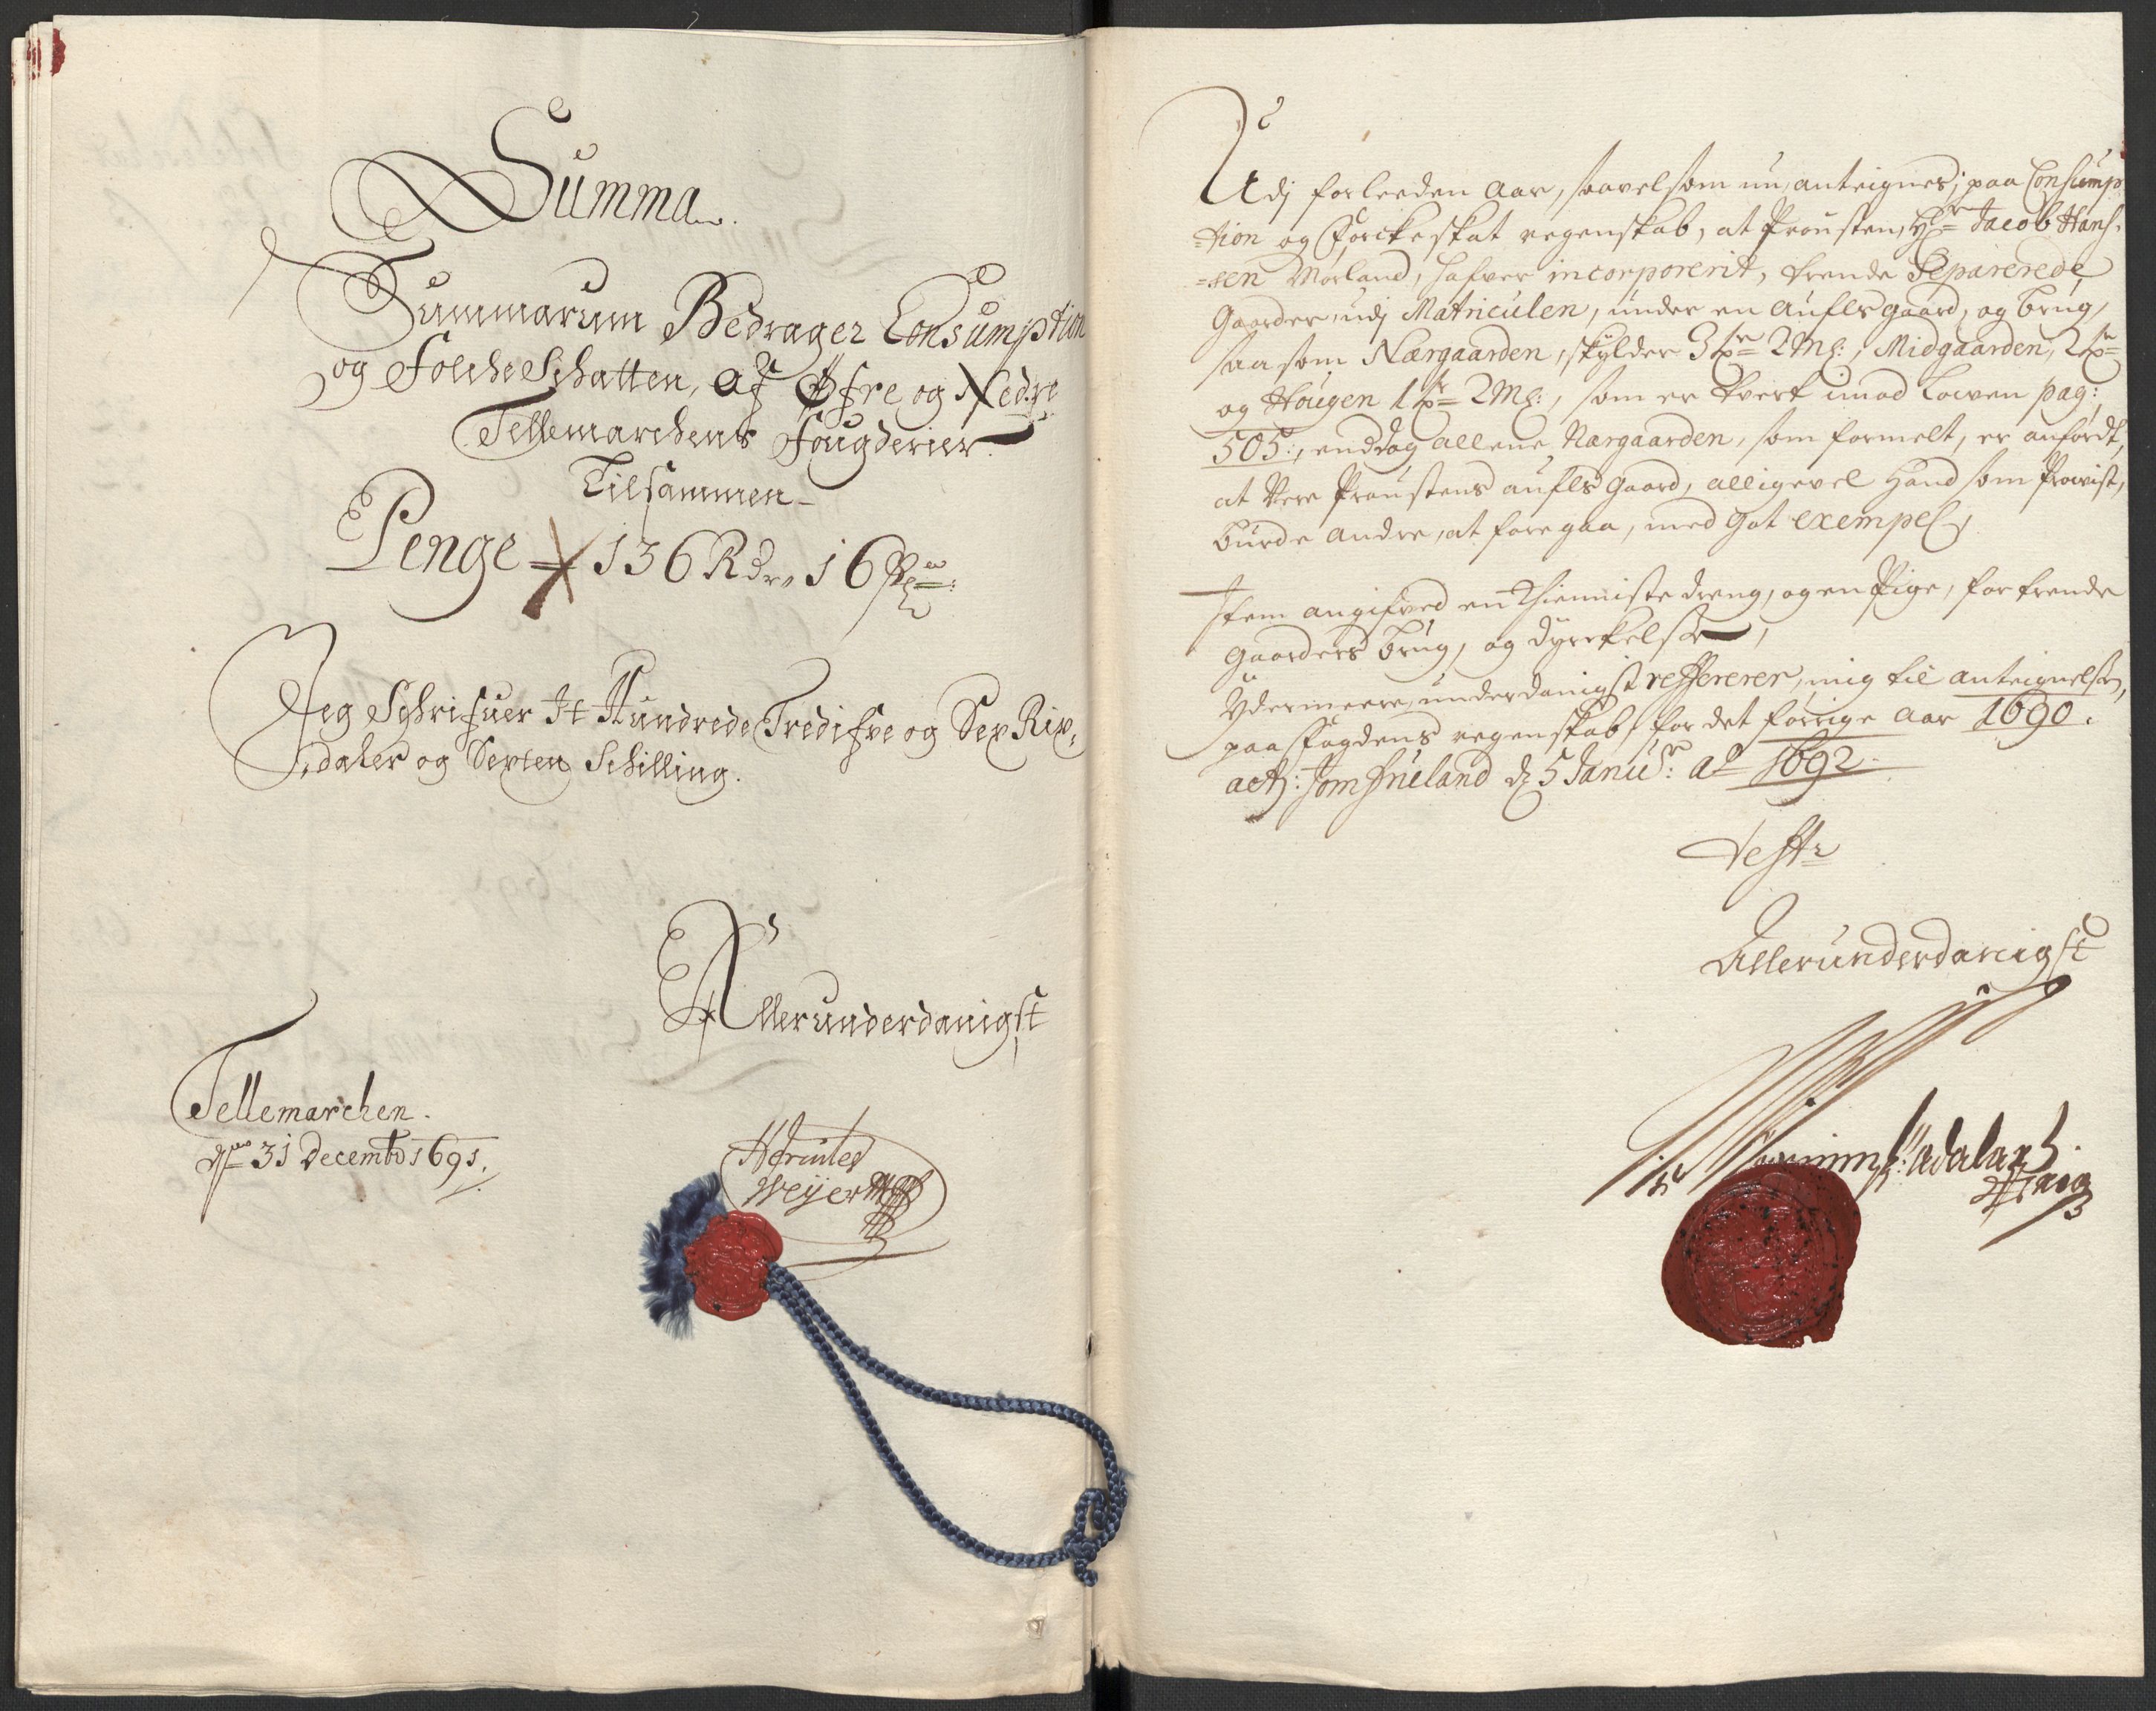 Summa
Summarum Bedrager Consumption
og Folche Schatten, af Øfre og Nedre
Tellemarchens Fougderier
Tilsammen
Penge 136 Rdr 16 ß
Jeg Schrifuer It Hundrede Tredifve og Sex Rix,
daler og Sexten Schilling.
Allerunderdanigst
Tellemarchen.
31 Decembr 1691.
Weyer
Udj forleeden Aar, saavelsom nu, anteignes paa Consump
=tion og Folckeskat regenskab, at Prousten, Hr Jacob Hans,
=sen Morland, hafver incorporerit, trende Separerede
Gaarder, udj Matriculen, under en aufls gaard, og brug,
saa som Nærgaarden, skylder 3 2 ; Midgaarden, 2
og Hougen 1 2 , som er tvert imod Lowen pag:
505:, enddog allene Nærgaarden, som formelt, er anfördt,
at Were Proustens aufls Gaard, alligevel hand som Provist,
burde andre, at foregaa, med got exempel,
Item angifved en thienniste dreng, og en Pige, for trende
Gaarders brug, og dyrckelse,
Ydermeere, underdanigst reffererer, mig til anteignelsen,
paa Fogdens regenskab, for det forrige Aar 1690.
act: Jomfrueland d 5 Janur: Ao 1692.
Allerunderdanigst